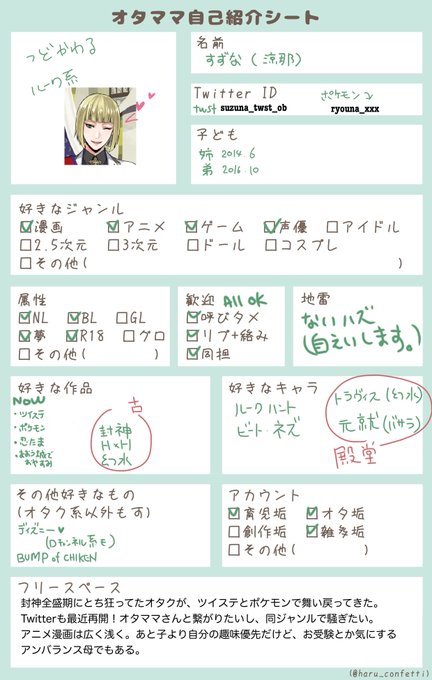 オタママ自己紹介シート
つどかわる
ルーク系
名前
すずな(涼那)
Twitter ID
twst suzuna_twst_ob
ポケモンコ ryouna_xxx
子ども
姉 2014.6
弟 2016.10
好きなジャンル
漫画 アニメ ゲーム 声優 アイドル
2.5次元 3次元 ドール コスプレ
その他( )
属性
NL BL GL
夢 R18 グロ
その他( )
歓迎 All OK
呼びタメ
リプ+絡み
同担
地雷
ないハズ
(自えいします。)
好きな作品
NOW
・ツイステ
・ポケモン
・忍たま
・魔王城でおやすみ
古
封神
H×H
幻水
好きなキャラ
ルークハント
ビート・ネズ
トラヴィス(幻水)
元就(バサラ)
殿堂
その他好きなもの
(オタク系以外も可)
ディズニー♥
(Dチャンネル系も)
BUMP of CHIKEN
アカウント
育児垢 オタ垢
創作垢 雑多垢
その他( )
フリースペース
封神全盛期にとち狂ってたオタクが、ツイステとポケモンで舞い戻ってきた。
Twitterも最近再開!オタママさんと繋がりたいし、同ジャンルで騒ぎたい。
アニメ漫画は広く浅く。あと子より自分の趣味優先だけど、お受験とか気にする
アンバランス母でもある。
(@haru_confetti)